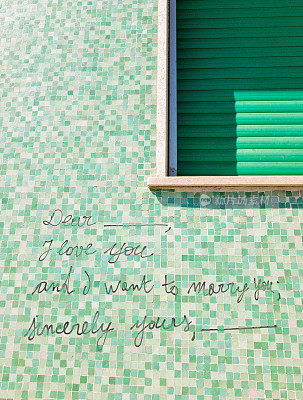 Dear ________,
I love you,
and I want to marry you;
sincerely yours, ________